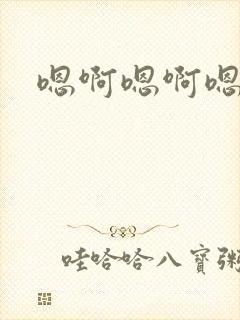 嗯啊嗯啊嗯
哇哈哈八寶粥